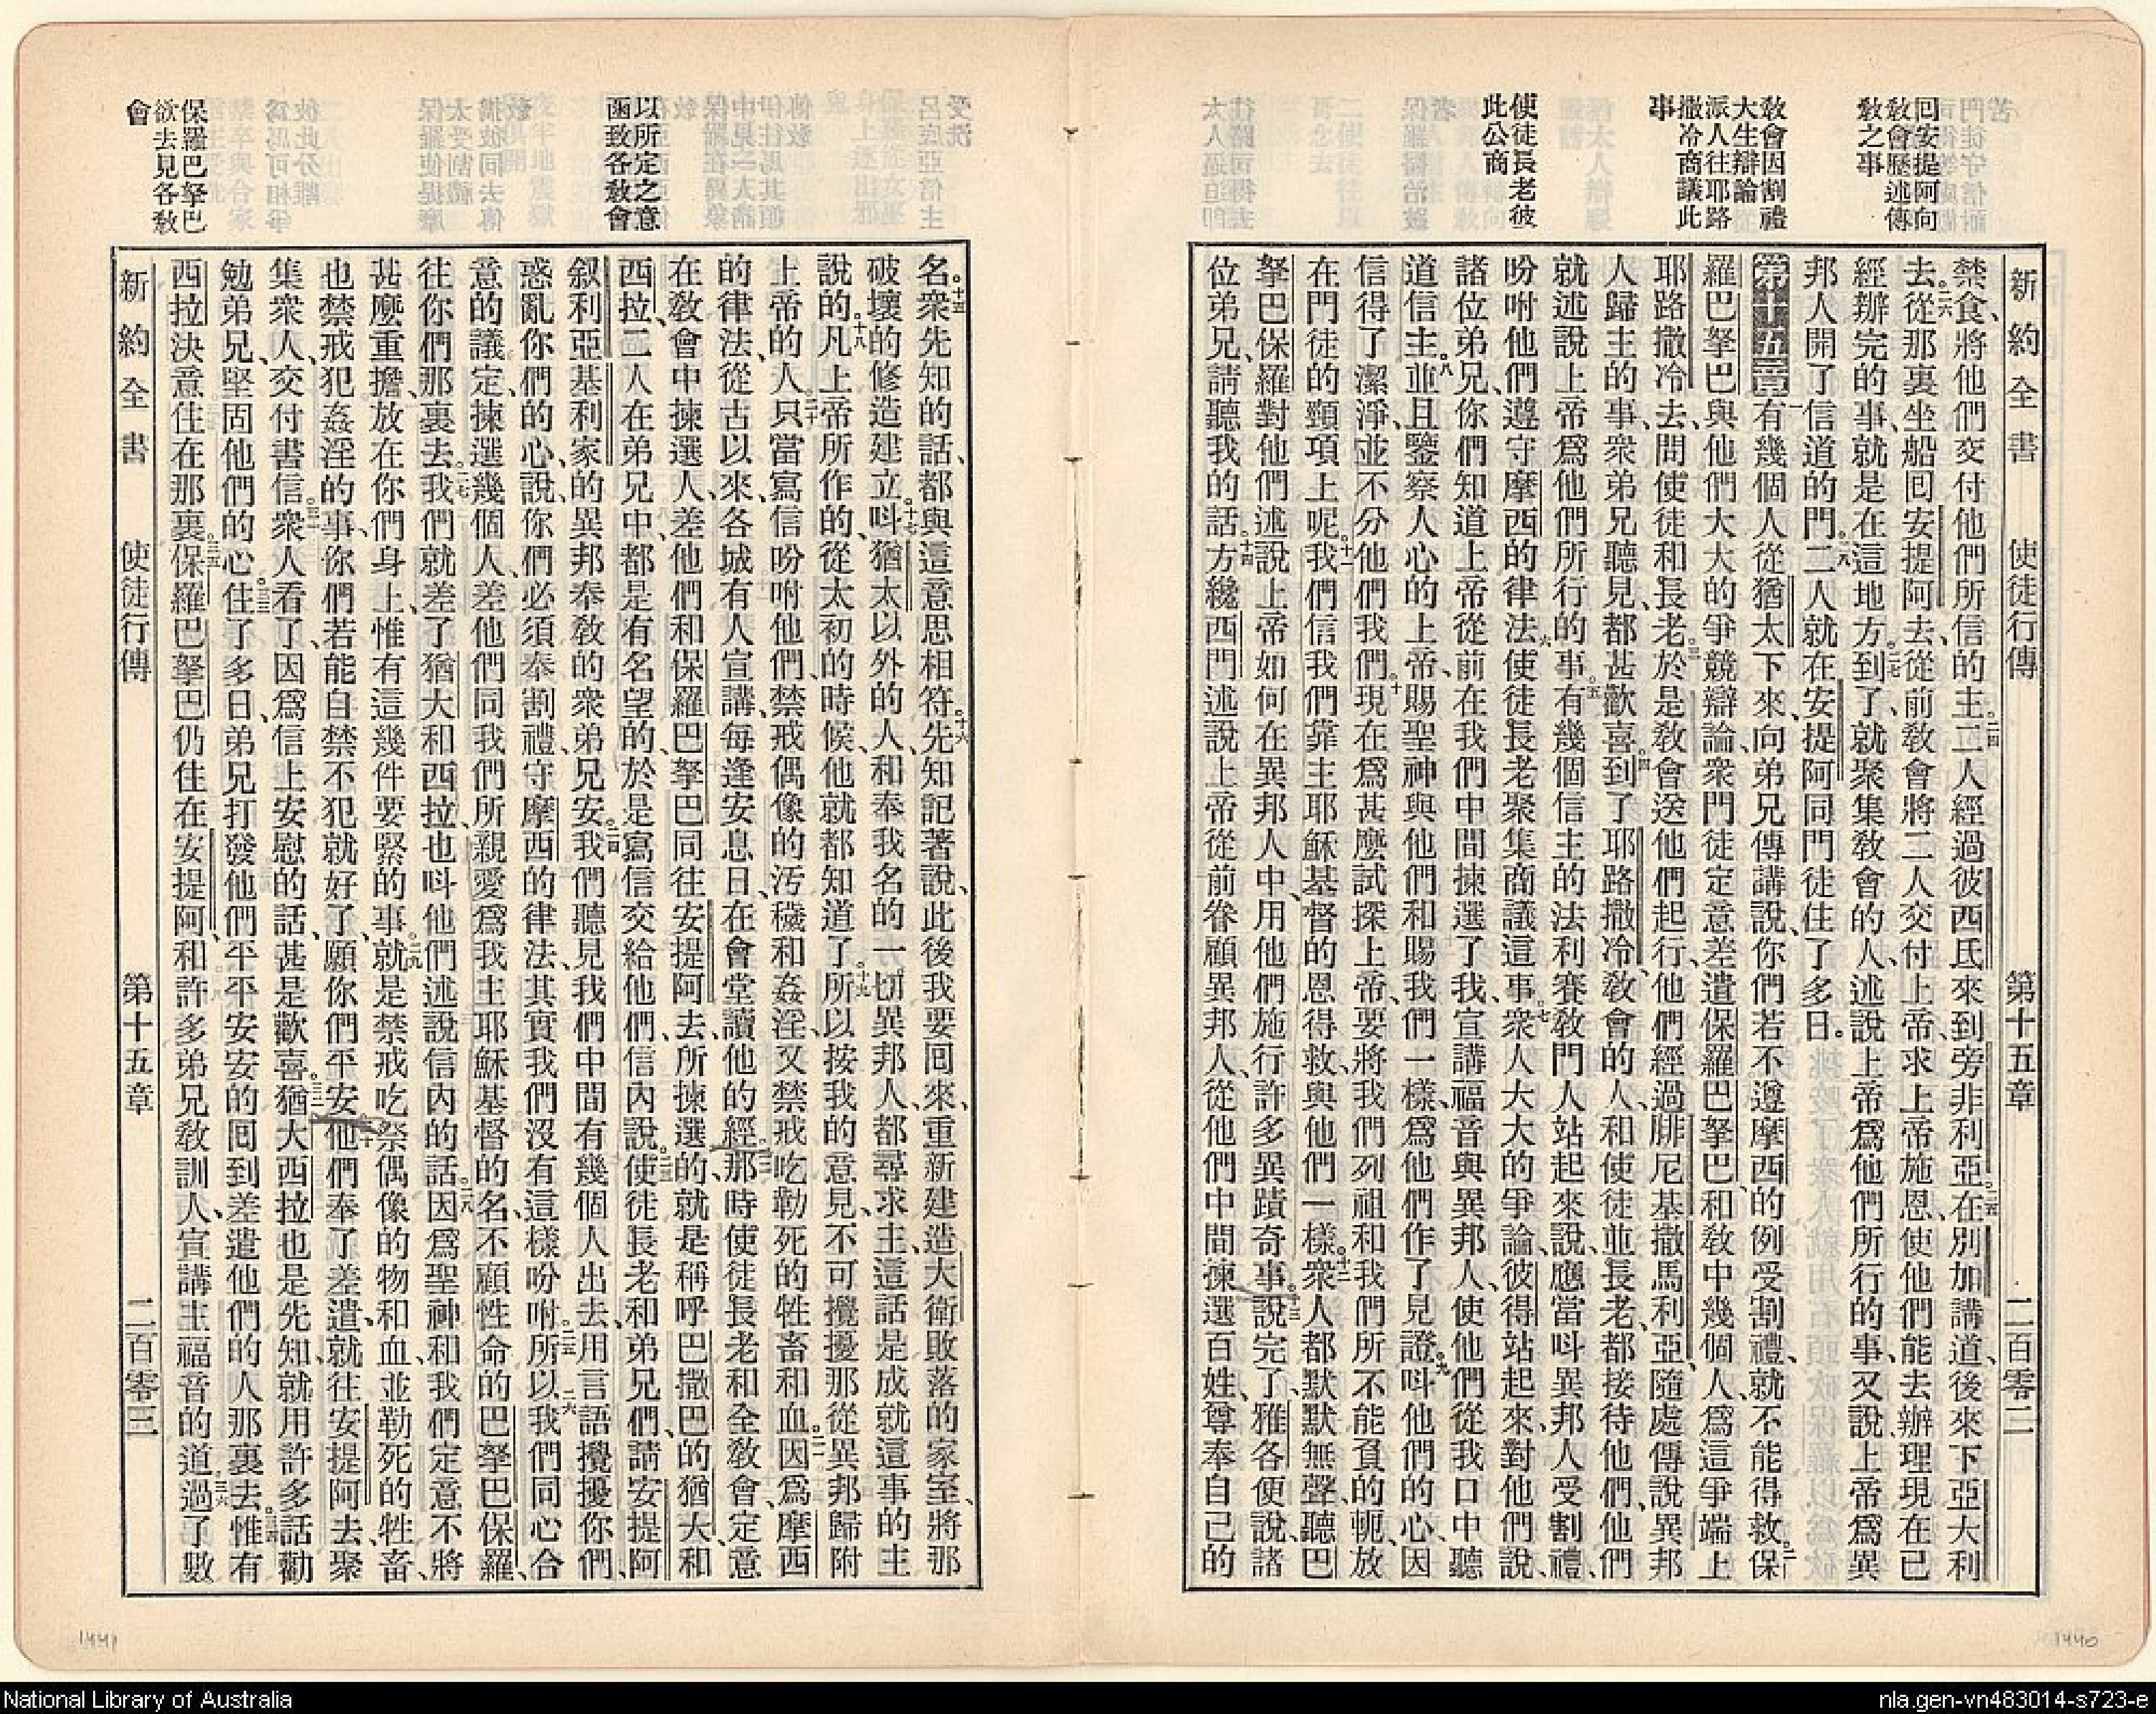 回安提阿向
敎會歷述傳
敎之事
敎會因割禮
大生辯論
派人往耶路
撒冷商議此
事
使徒長老彼
此公商
新約全書 使徒行傳 第十五章 二百零二
禁食、將他們交付他們所信的主。二四二人經過彼西氐來到旁非利亞。二五在別加講道、後來下亞大利
去。二六從那裏坐船囘安提阿去、從前敎會將二人交付上帝、求上帝施恩、使他們能去辦理現在已
經辦完的事、就是在這地方。二七到了、就聚集敎會的人、述說上帝爲他們所行的事、又說上帝爲異
邦人開了信道的門。二八二人就在安提阿同門徒住了多日。
第十五章 一有幾個人從猶太下來、向弟兄傳講說、你們若不遵摩西的例受割禮、就不能得救。二保
羅巴拏巴與他們大大的爭競辯論、衆門徒定意差遣保羅巴拏巴、和敎中幾個人、爲這爭端上
耶路撒冷去、問使徒和長老。三於是敎會送他們起行、他們經過腓尼基撒馬利亞、隨處傳說異邦
人歸主的事、衆弟兄聽見、都甚歡喜。四到了耶路撒冷、敎會的人、和使徒並長老、都接待他們、他們
就述說上帝爲他們所行的事。五有幾個信主的法利賽敎門人站起來說、應當呌異邦人受割禮、
吩咐他們遵守摩西的律法。六使徒長老聚集商議這事。七衆人大大的爭論、彼得站起來、對他們說、
諸位弟兄、你們知道上帝從前在我們中間揀選了我、宣講福音與異邦人、使他們從我口中聽
道信主。八並且鑒察人心的上帝、賜聖神與他們、和賜我們一樣、爲他們作了見證。九呌他們的心、因
信得了潔淨、並不分他們我們。十現在爲甚麼試探上帝、要將我們列祖和我們所不能負的軛、放
在門徒的頸項上呢。十一我們信我們靠主耶穌基督的恩得救、與他們一樣。十二衆人都默默無聲、聽巴
拏巴保羅對他們述說上帝如何在異邦人中、用他們施行許多異蹟奇事。十三說完了、雅各便說、諸
位弟兄、請聽我的話。十四方纔西門述說上帝從前眷顧異邦人、從他們中間揀選百姓、尊奉自己的
以所定之意
函致各敎會
保羅巴拏巴
欲去見各敎
會
名。十五衆先知的話、都與這意思相符。十六先知記著說、此後我要囘來、重新建造大衛敗落的家室、將那
破壞的修造建立。十七呌猶太以外的人、和奉我名的一切異邦人、都尋求主、這話是成就這事的主
說的。十八凡上帝所作的、從太初的時候、他就都知道了。十九所以按我的意見、不可攪擾那從異邦歸附
上帝的人。二十只當寫信吩咐他們、禁戒偶像的汚穢和姦淫、又禁戒吃勒死的牲畜和血。二一因爲摩西
的律法、從古以來、各城有人宣講、每逢安息日、在會堂讀他的經。二二那時使徒長老和全敎會、定意
在敎會中揀選人、差他們和保羅巴拏巴同往安提阿去、所揀選的、就是稱呼巴撒巴的猶大和
西拉、二人在弟兄中、都是有名望的、於是寫信交給他們、信內說。二三使徒長老和弟兄們、請安提阿
叙利亞基利家的異邦奉敎的衆弟兄安。二四我們聽見我們中間有幾個人出去、用言語攪擾你們、
惑亂你們的心、說你們必須奉割禮、守摩西的律法、其實我們沒有這樣吩咐。二五所以二六我們同心合
意的議定、揀選幾個人、差他們同我們所親愛爲我主耶穌基督的名、不顧性命的巴拏巴保羅、
往你們那裏去。二七我們就差了猶大和西拉、也呌他們述說信內的話。二八因爲聖神和我們定意不將
甚麼重擔、放在你們身上、惟有這幾件要緊的事。二九就是禁戒吃祭偶像的物和血、並勒死的牲畜、
也禁戒犯姦淫的事、你們若能自禁不犯就好了、願你們平安。三十他們奉了差遣、就往安提阿去、聚
集衆人、交付書信。三一衆人看了、因爲信上安慰的話、甚是歡喜。三二猶大西拉也是先知、就用許多話勸
勉弟兄、堅固他們的心。三三住了多日、弟兄打發他們平平安安的囘到差遣他們的人那裏去。三四惟有
西拉決意住在那裏。三五保羅巴拏巴仍住在安提阿、和許多弟兄敎訓人、宣講主福音的道。三六過了數
新約全書 使徒行傳 第十五章 二百零三
1441
1440
National Library of Australia
nla.gen-vn483014-s723-e